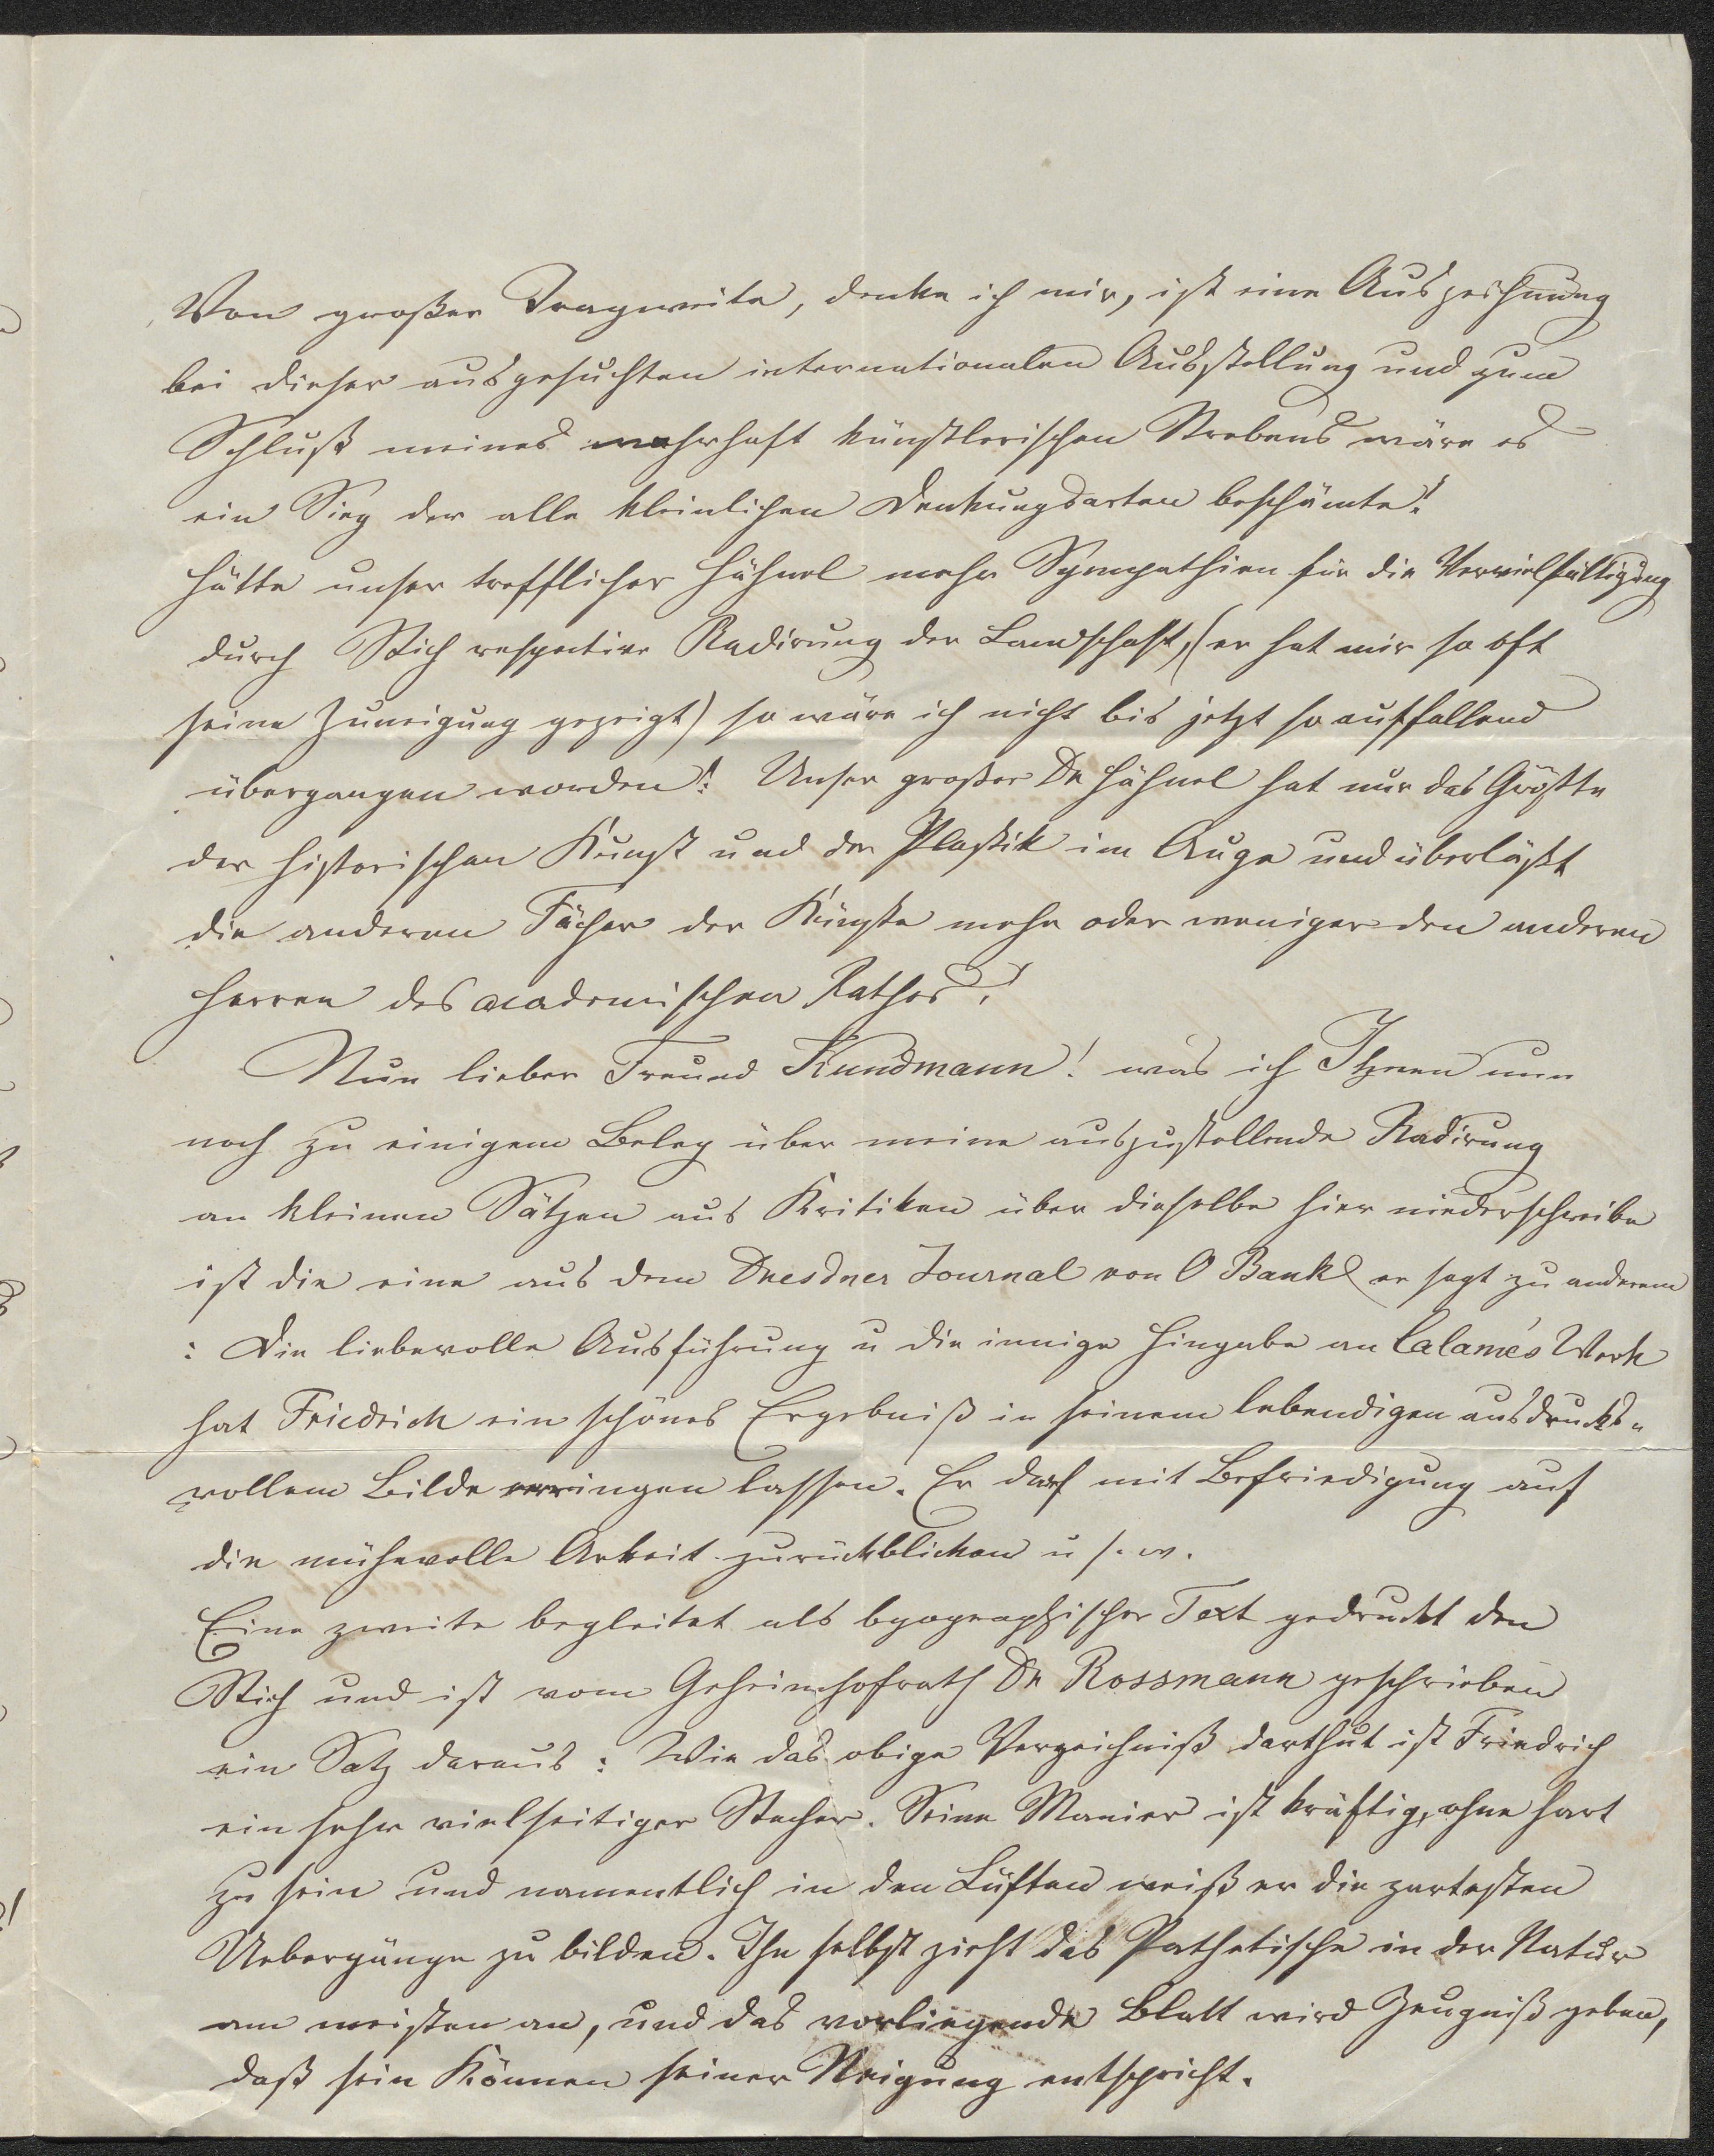 Von großer Tragweite, denke ich mir, ist eine Auszeichnung
bei dieser ausgesuchten internationalen Ausstellung und zum
Schluß meines wahrhaft künstlerischen Strebens wäre es
ein Sieg der alle kleinlichen Denkungsarten beschämte!
Hätte unser trefflicher Hähnel mehr Sympathien für die Vervielfältigung
durch Stich respective Radirung der Landschaft, (er hat mir so oft
seine Zuneigung gezeigt) so wäre ich nicht bis jetzt so auffallend
übergangen worden! Unser großer Dr Hähnel hat nur das Größte
der historischen Kunst und der Plastik im Auge und überläßt
die anderen Fächer der Künste mehr oder weniger den anderen
Herren des academischen Rathes!
Nun lieber Freund Kundmann! was ich Ihnen nun
noch zu einigem Beleg über meine auszustellende Radirung
an kleinen Sätzen aus Kritiken über dieselbe hier niederschreibe
ist die eine aus dem Dresdner Journal von O Bank er sagt zu anderem
: Die liebevolle Ausführung u die innige Hingabe an Calame's Werk
hat Friedrich ein schönes Ergebniß in seinem lebendigen ausdrucks-
vollem Bilde erringen lassen. Er darf mit Befriedigung auf
die mühevolle Arbeit zurückblicken u s. w.
Eine zweite begleitet als byographischer Text gedruckt den
Stich und ist vom Geheimhofrath Dr Rossmann geschrieben
ein Satz daraus: Wie das obige Verzeichniß darthut ist Friedrich
ein sehr vielseitiger Stecher. Seine Manier ist kräftig, ohne hart
zu sein und namentlich in den Lüften weiß er die zartesten
Uebergänge zu bilden. Ihn selbst zieht das Pathetische in der Natur
am meisten an, und das vorliegende Blatt wird Zeugniß geben,
daß sein Können seiner Neigung entspricht.